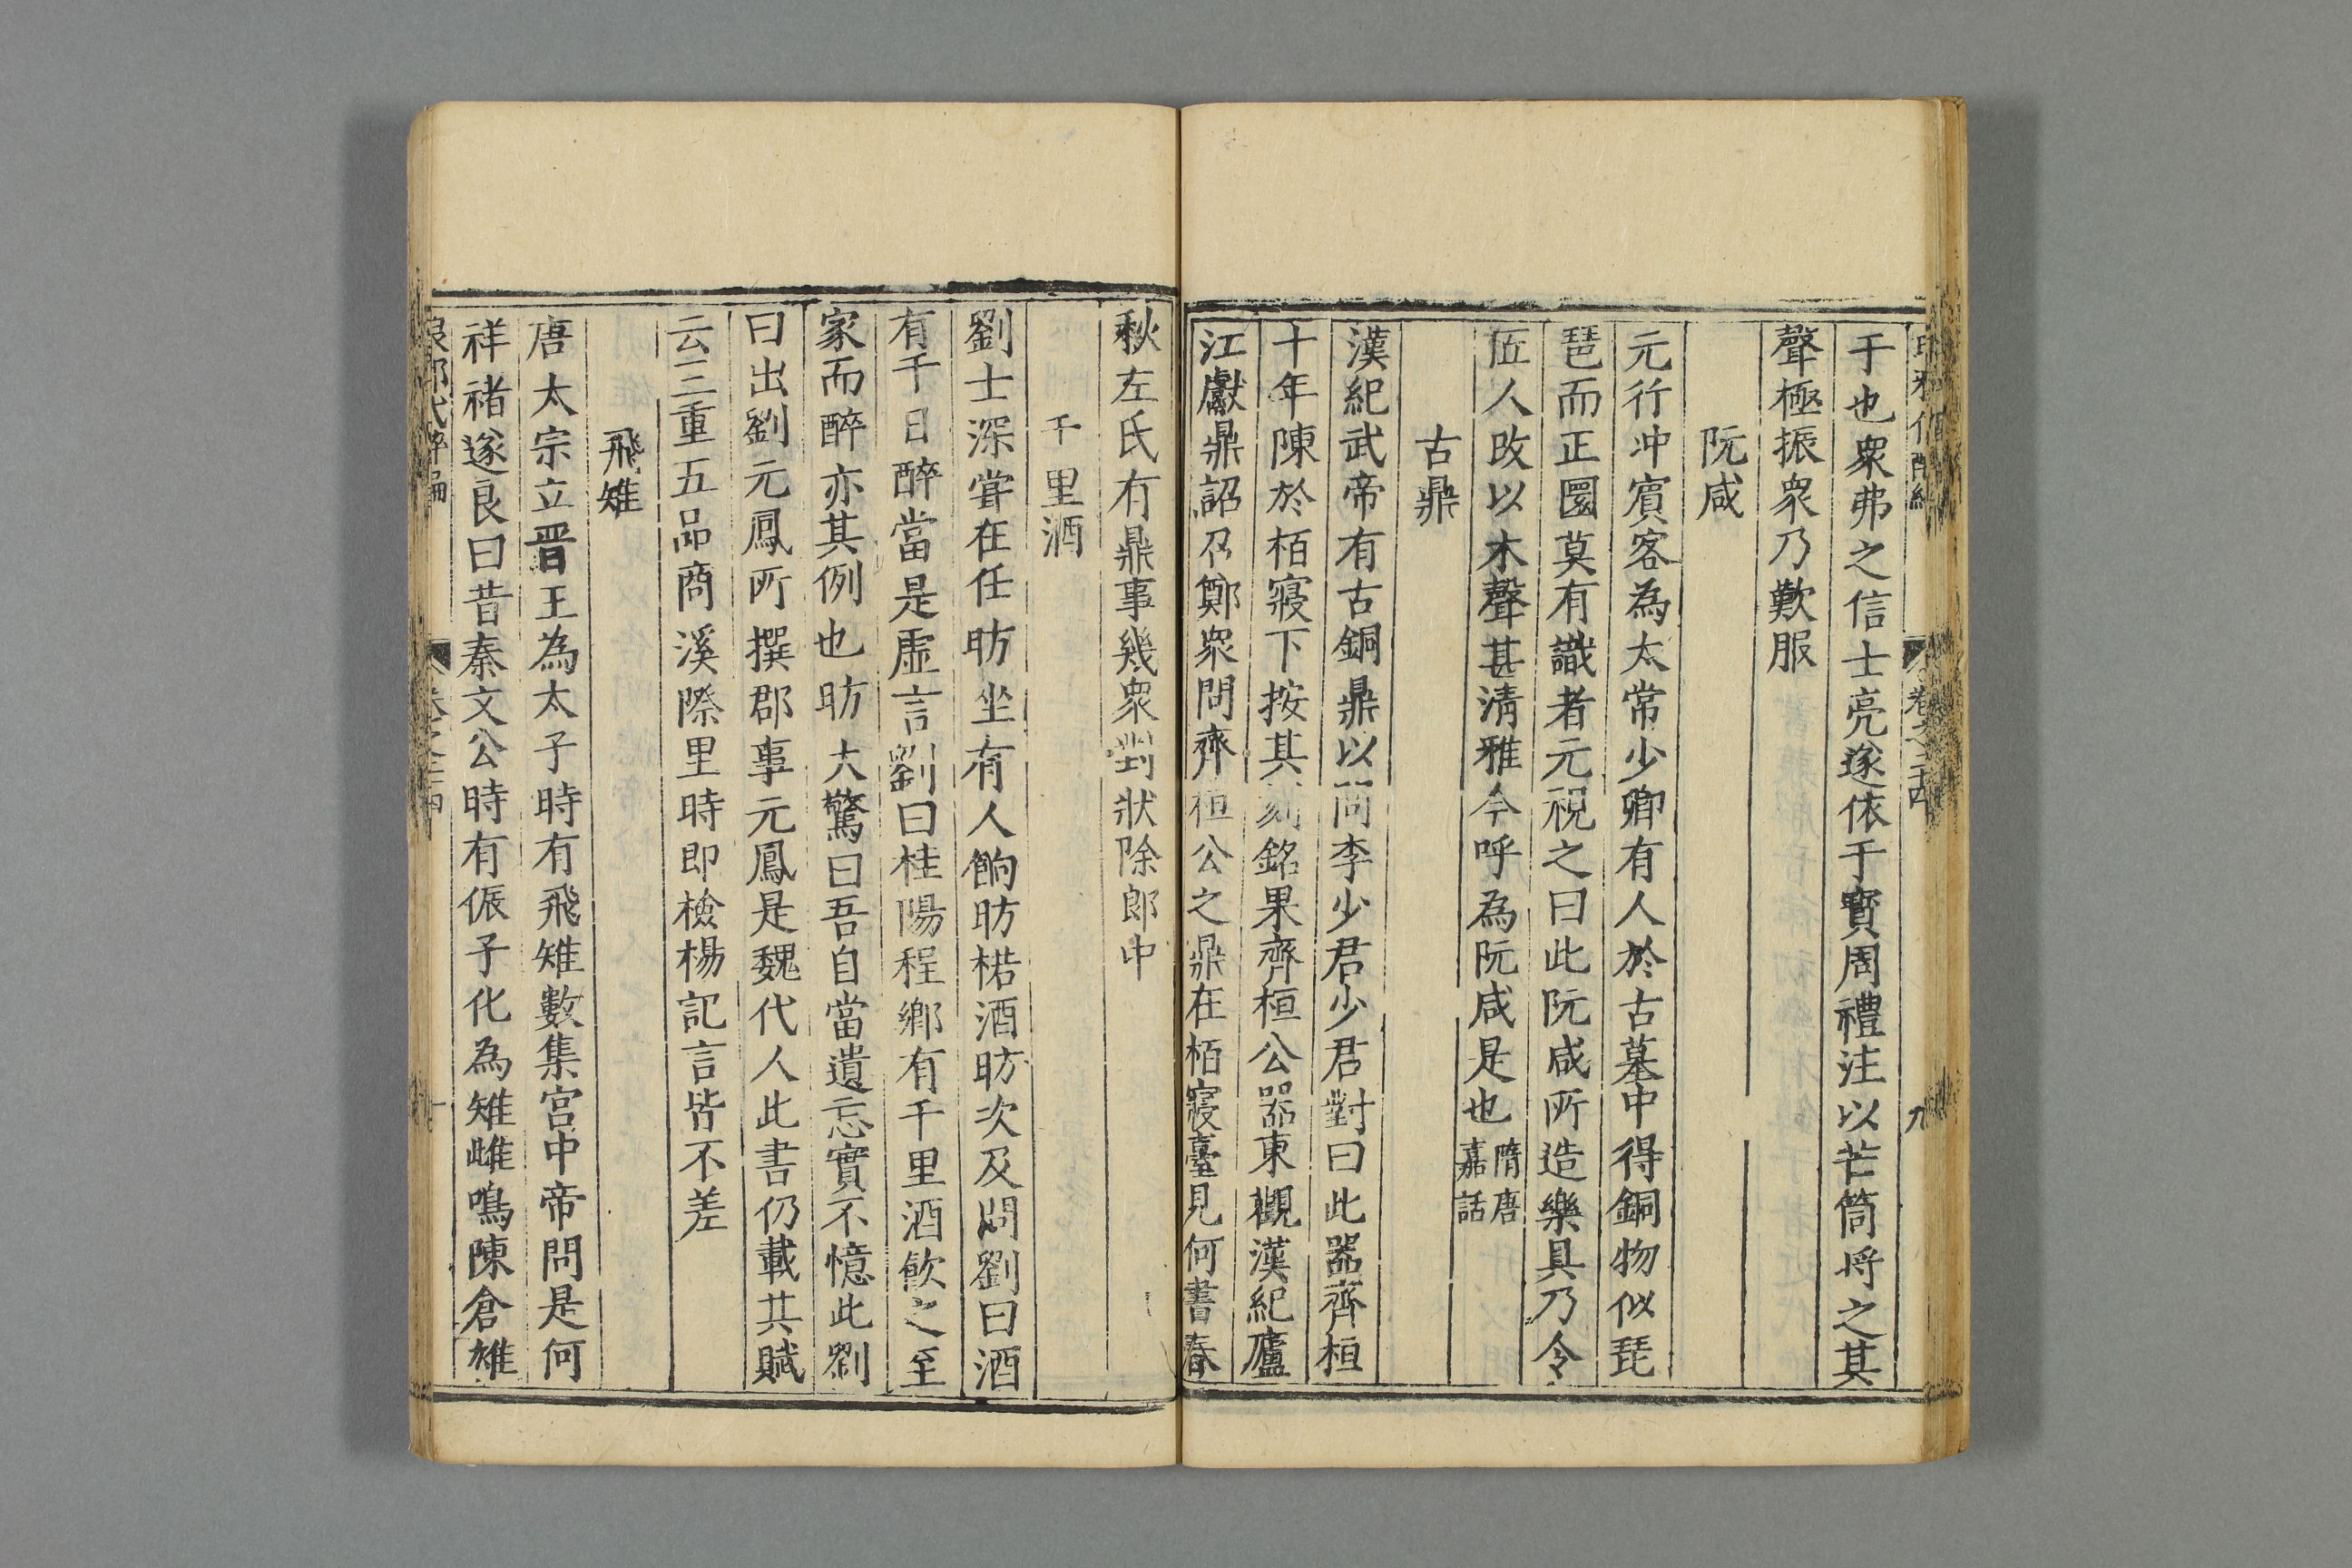 于也衆弗之信士亮遂依于寶周禮注以芒筒捋之其
聲極振衆乃歎服
阮咸
元行冲賓客為太常少卿有人於古墓中得銅物似琵
琶而正圜莫有識者元視之曰此阮咸所造樂具乃令
匠人改以木聲甚清雅今呼為阮咸是也隋唐
嘉話
古鼎
漢紀武帝有古銅鼎以問李少君少君對曰此器齊桓
十年陳於栢寢下按其刻銘果齊桓公器東觀漢紀廬
江獻鼎詔召鄭衆問齊桓公之鼎在栢寢臺見何書春
秋左氏有鼎事幾衆對狀除郎中
千里酒
劉士深甞在任昉坐有人餉昉楉酒昉次及問劉曰酒
有千日醉當是虛言劉曰桂陽程鄉有千里酒飲之至
家而醉亦其例也昉大驚曰吾自當遺忘實不憶此劉
曰出劉元鳳所撰郡事元鳳是魏代人此書仍載其賦
云三重五品商溪際里時即檢楊記言皆不差
飛雉
唐太宗立晋王為太子時有飛雉數集宮中帝問是何
祥褚遂良曰昔秦文公時有侲子化為雉雌鳴陳倉雄